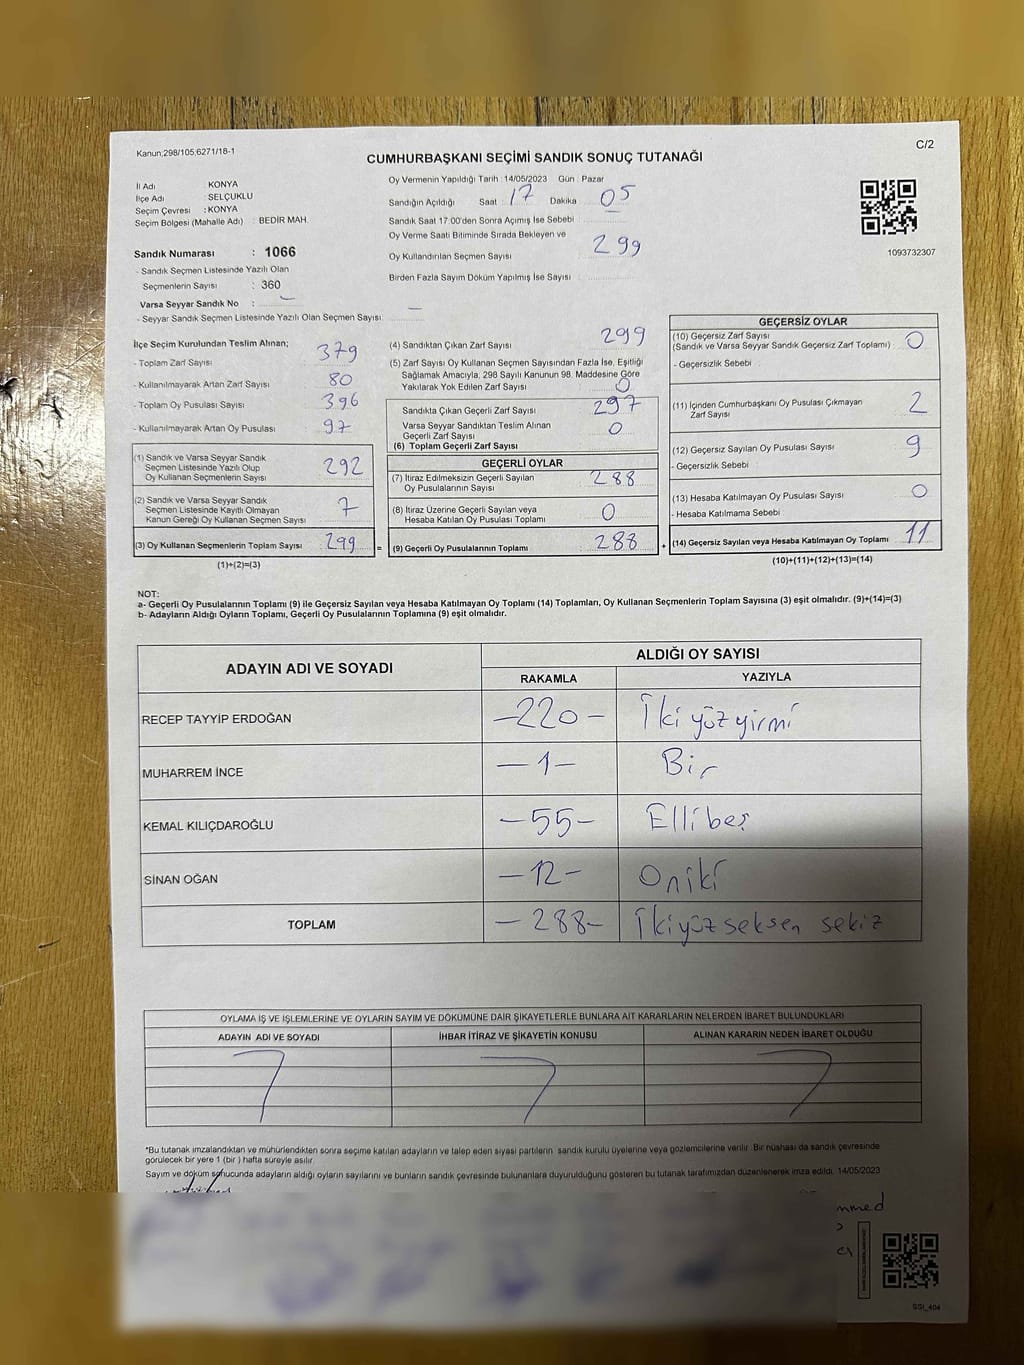 Kanun;298/105;6271/18-1
C/2
CUMHURBAŞKANI SEÇİMİ SANDIK SONUÇ TUTANAĞI
İl Adı KONYA
İlçe Adı : SELÇUKLU
Seçim Çevresi : KONYA
Seçim Bölgesi (Mahalle Adı) : BEDIR MAH.
Sandık Numarası : 1066
- Sandık Seçmen Listesinde Yazılı Olan
Seçmenlerin Sayısı : 360
Varsa Seyyar Sandık No : –
- Seyyar Sandık Seçmen Listesinde Yazılı Olan Seçmen Sayısı: –
Oy Vermenin Yapıldığı Tarih : 14/05/2023 Gün : Pazar
Sandığın Açıldığı Saat : 17 Dakika 05
Sandık Saat 17:00'den Sonra Açımış İse Sebebi :
Oy Verme Saati Bitiminde Sırada Bekleyen ve
Oy Kullandırılan Seçmen Sayısı : 299
Birden Fazla Sayım Döküm Yapılmış İse Sayısı :
1093732307
İlçe Seçim Kurulundan Teslim Alınan;
- Toplam Zarf Sayısı : 379
- Kullanılmayarak Artan Zarf Sayısı : 80
- Toplam Oy Pusulası Sayısı : 396
- Kullanılmayarak Artan Oy Pusulası : 97
(1) Sandık ve Varsa Seyyar Sandık
Seçmen Listesinde Yazılı Olup
Oy Kullanan Seçmenlerin Sayısı : 292
(2) Sandık ve Varsa Seyyar Sandık
Seçmen Listesinde Kayıtlı Olmayan
Kanun Gereği Oy Kullanan Seçmen Sayısı : 7
(3) Oy Kullanan Seçmenlerin Toplam Sayısı : 299 =
(1)+(2)=(3)
(4) Sandıktan Çıkan Zarf Sayısı : 299
(5) Zarf Sayısı Oy Kullanan Seçmen Sayısından Fazla İse, Eşitliği
Sağlamak Amacıyla, 298 Sayılı Kanunun 98. Maddesine Göre
Yakılarak Yok Edilen Zarf Sayısı : 0
Sandıkta Çıkan Geçerli Zarf Sayısı : 297
Varsa Seyyar Sandıktan Teslim Alınan
Geçerli Zarf Sayısı : 0
(6) Toplam Geçerli Zarf Sayısı :
GEÇERLİ OYLAR
(7) İtiraz Edilmeksizin Geçerli Sayılan
Oy Pusulalarının Sayısı : 288
(8) İtiraz Üzerine Geçerli Sayılan veya
Hesaba Katılan Oy Pusulası Toplamı : 0
(9) Geçerli Oy Pusulalarının Toplamı : 288 +
GEÇERSİZ OYLAR
(10) Geçersiz Zarf Sayısı
(Sandık ve Varsa Seyyar Sandık Geçersiz Zarf Toplamı) : 0
- Geçersizlik Sebebi
(11) İçinden Cumhurbaşkanı Oy Pusulası Çıkmayan
Zarf Sayısı : 2
(12) Geçersiz Sayılan Oy Pusulası Sayısı : 9
- Geçersizlik Sebebi
(13) Hesaba Katılmayan Oy Pusulası Sayısı : 0
- Hesaba Katılmama Sebebi
(14) Geçersiz Sayılan veya Hesaba Katılmayan Oy Toplamı : 11
(10)+(11)+(12)+(13)=(14)
NOT:
a- Geçerli Oy Pusulalarının Toplamı (9) ile Geçersiz Sayılan veya Hesaba Katılmayan Oy Toplamı (14) Toplamları, Oy Kullanan Seçmenlerin Toplam Sayısına (3) eşit olmalıdır. (9)+(14)=(3)
b- Adayların Aldığı Oyların Toplamı, Geçerli Oy Pusulalarının Toplamına (9) eşit olmalıdır.
ADAYIN ADI VE SOYADI ALDIĞI OY SAYISI
RAKAMLA YAZIYLA
RECEP TAYYİP ERDOĞAN –220– İkiyüzyirmi
MUHARREM İNCE –1– Bir
KEMAL KILIÇDAROĞLU –55– Ellibeş
SİNAN OĞAN –12– Oniki
TOPLAM –288– İkiyüz seksen sekiz
OYLAMA İŞ VE İŞLEMLERİNE VE OYLARIN SAYIM VE DÖKÜMÜNE DAİR ŞİKAYETLERLE BUNLARA AİT KARARLARIN NELERDEN İBARET BULUNDUKLARI
ADAYIN ADI VE SOYADI İHBAR İTİRAZ VE ŞİKAYETİN KONUSU ALINAN KARARIN NEDEN İBARET OLDUĞU
*Bu tutanak imzalandıktan ve mühürlendikten sonra seçime katılan adayların ve talep eden siyasi partilerin sandık kurulu üyelerine veya gözlemcilerine verilir. Bir nüshası da sandık çevresinde
görülecek bir yere 1 (bir ) hafta süreyle asılır.
Sayım ve döküm sonucunda adayların aldığı oyların sayılarını ve bunların sandık çevresinde bulunanlara duyurulduğunu gösteren bu tutanak tarafımızdan düzenlenerek imza edildi. 14/05/2023
mmed
SSI_404